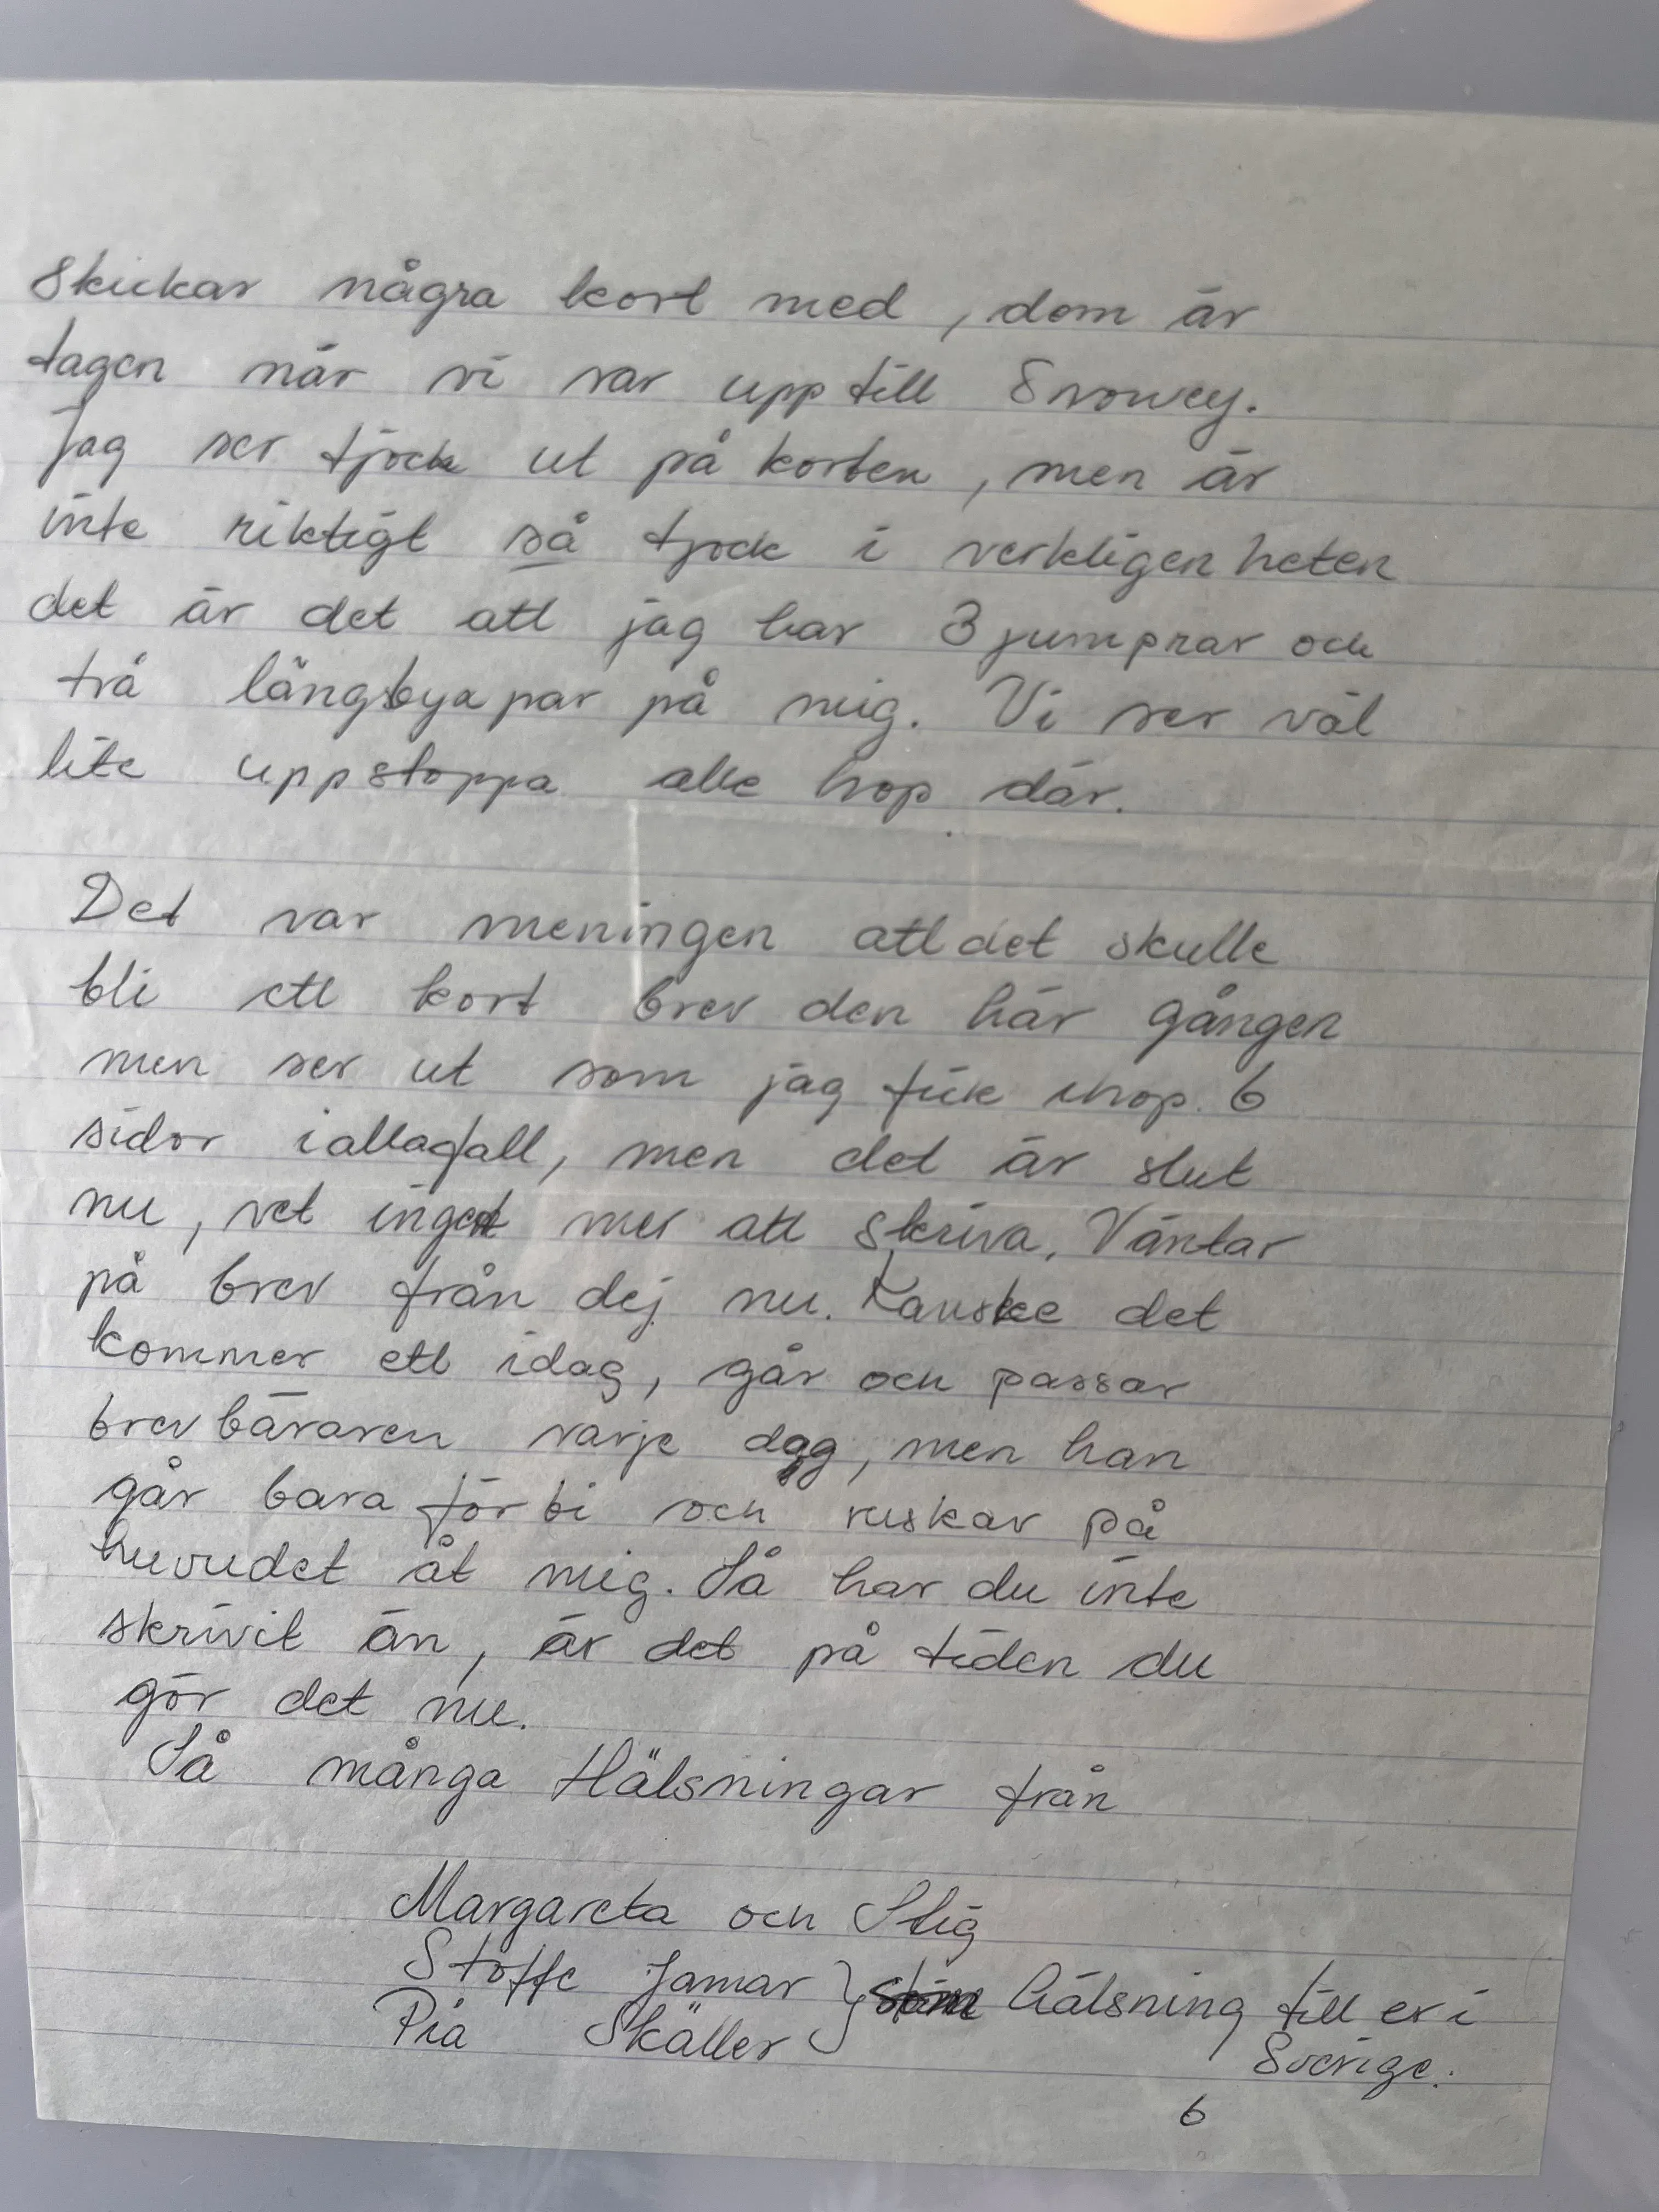 Skickar några kort med, dom är
tagen när vi var upp till Snowey.
Jag ser tjock ut på korten, men är
inte riktigt så tjock i verkligenheten
det är det att jag har 3 jumprar och
två långbyxpar på mig. Vi ser väl
lite uppstoppa alle hop där.
Det var meningen att det skulle
bli ett kort brev den här gången
men ser ut som jag fick ihop 6
sidor iallagfall, men det är slut
nu, vet inget mer att skriva. Väntar
på brev från dej nu. Kanske det
kommer ett idag, går och passar
brevbäraren varje dag, men han
går bara förbi och ruskar på
huvudet åt mig. Så har du inte
skrivit än, är det på tiden du
gör det nu.
Så många Hälsningar från
Margareta och Stig
Stoffe Jamar } hälsning till er i
Pia Skäller } Sverige.
6